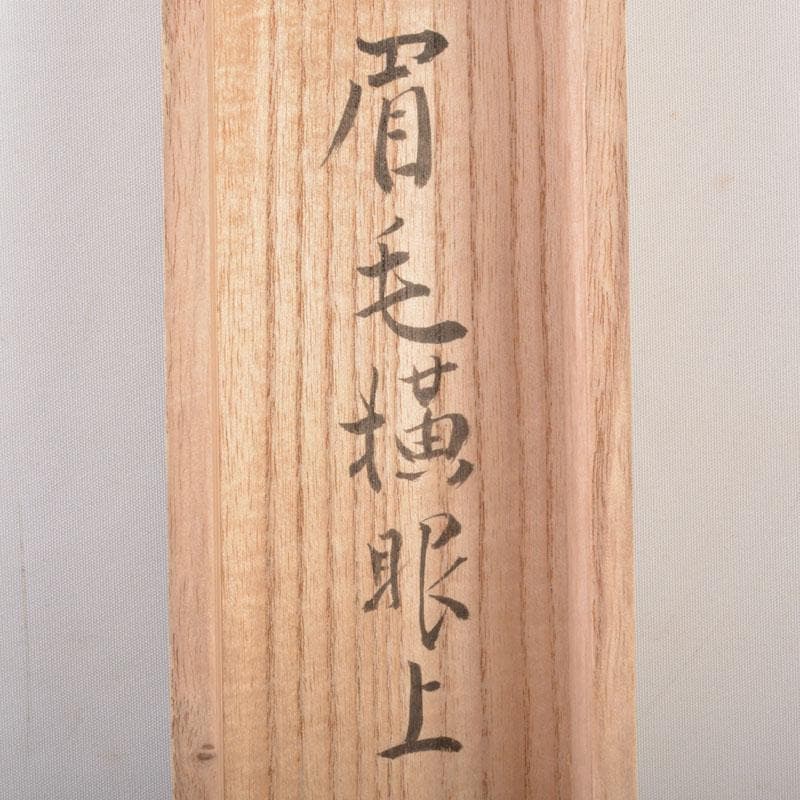 眉毛横眼上